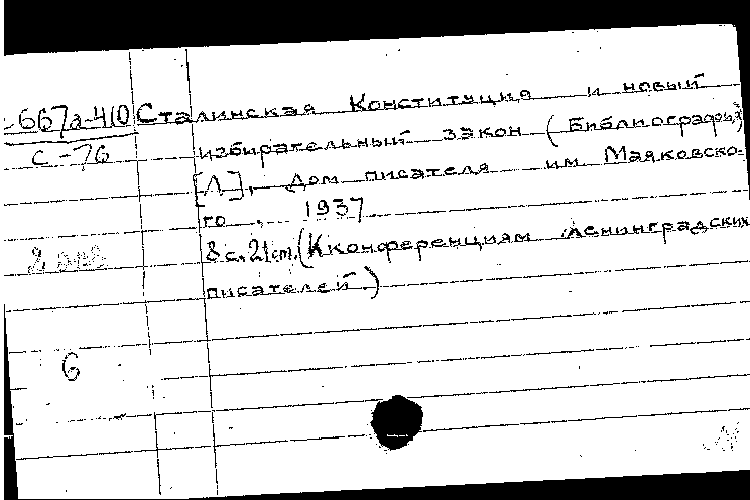 -667а-410 Сталинская Конституция и новый
С-76 избирательный закон (Библиография)
[Л], Дом писателя им. Маяковско-
го, 1937
8 с. 21 cm. (К конференциям ленинградских
писателей.)
6